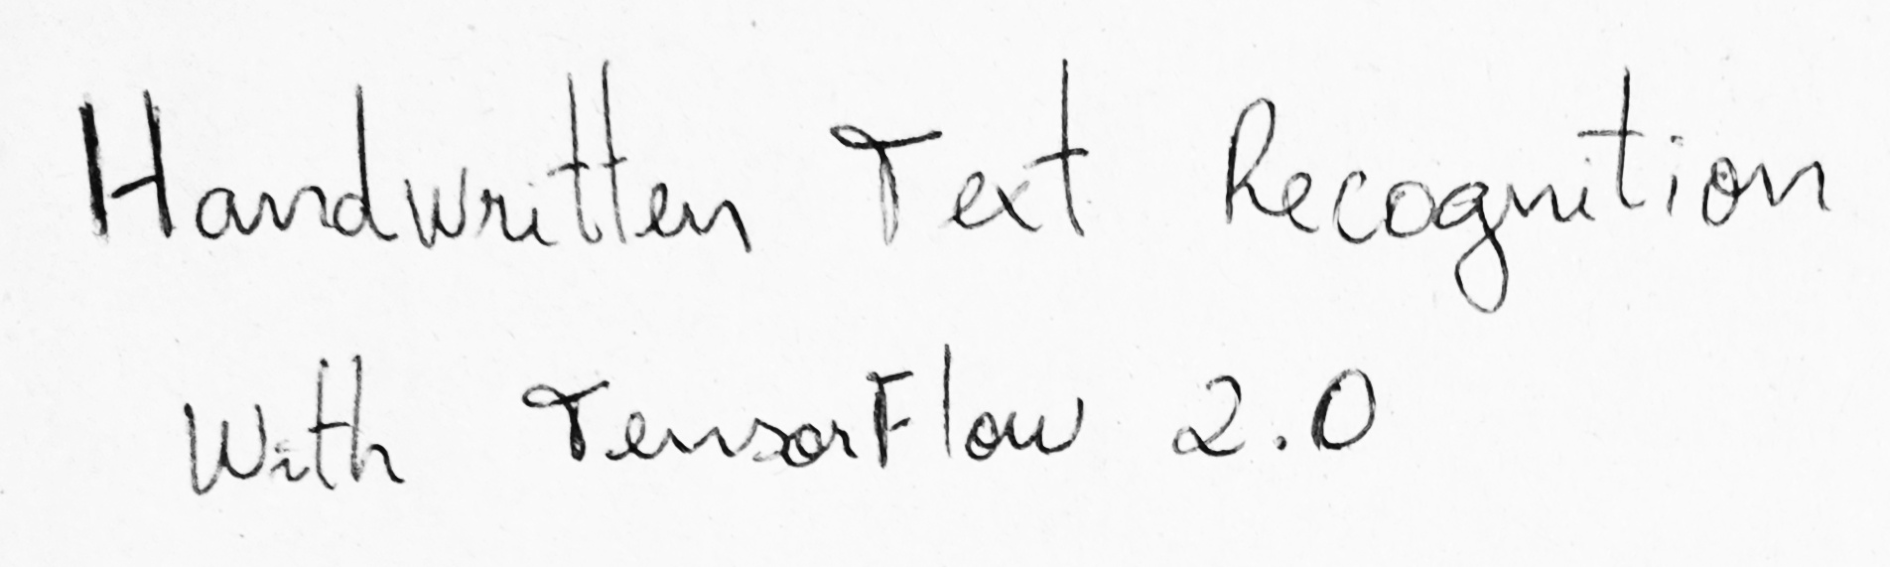 Handwritten Text Recognition
With TensorFlow 2.0